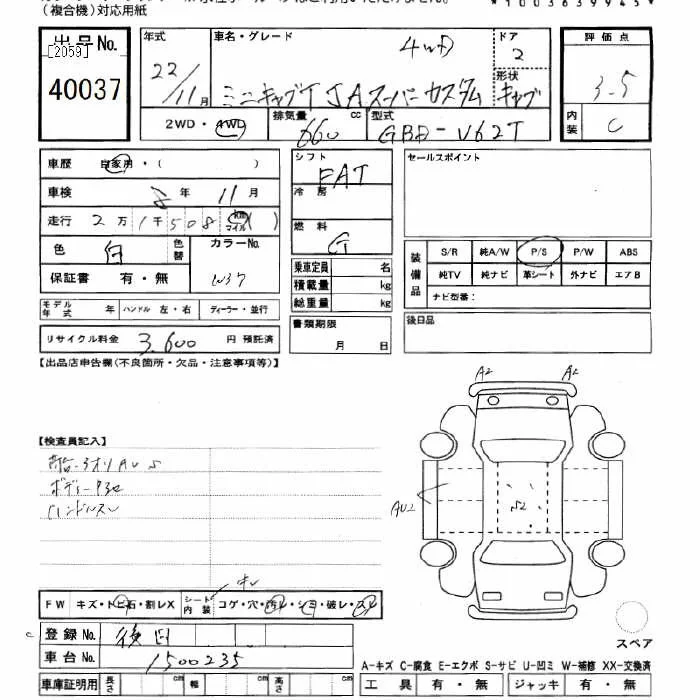 (複合機)対応用紙
出品No.
[2059]
40037
年式
22/11月
車名・グレード
4WD
ミニキャブT JAスーパーカスタム
ドア
2
形状
キャブ
評価点
3.5
内装
C
2WD・4WD
排気量 660 cc
型式 GBD-V62T
車歴 自家用・( )
車検 年 11月
走行 2万1千508 km マイル ( )
色 白 色替
カラーNo.
W37
保証書 有・無
モデル年式 年 ハンドル 左・右 ディーラー・並行
リサイクル料金 3,600 円 預託済
シフト
FAT
冷房
燃料
G
乗車定員 名
積載量 kg
総重量 kg
書類期限
月 日
セールスポイント
装備品
S/R 純A/W P/S P/W ABS
純TV 純ナビ 革シート 外ナビ エアB
ナビ型番:
後日品
【出品店申告欄(不良箇所・欠品・注意事項等)】
A2 A2
AU2
S2
【検査員記入】
FW キズ・トビ石・割レX シート内装 コゲ・穴・汚レ・シミ・破レ・スレ
登録No. 後日
車台No. 1500235
車庫証明用 長さ cm 幅 cm 高さ cm
スペア
A-キズ C-腐食 E-エクボ S-サビ U-凹ミ W-補修 XX-交換済
工具 有・無 ジャッキ 有・無